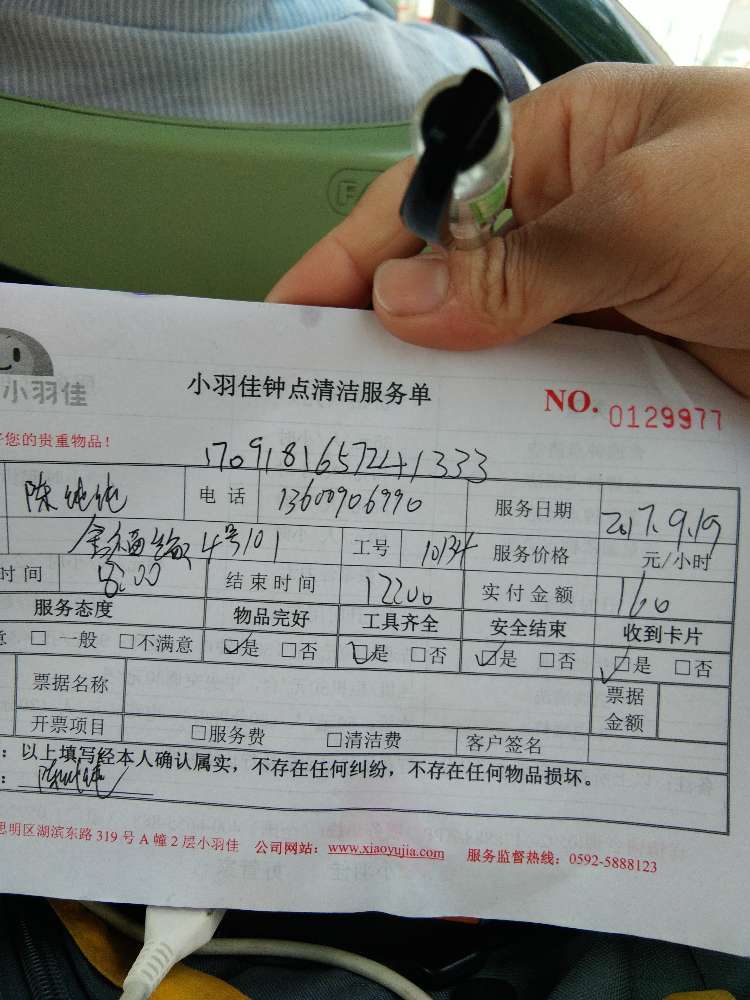 小羽佳
小羽佳钟点清洁服务单
NO. 0129977
您的贵重物品！
1709181657241333
陈纯纯 电话 13600906990 服务日期 2017.9.19
4号101 工号 10134 服务价格 元/小时
时间 8:00 结束时间 12:00 实付金额 160
服务态度 物品完好 工具齐全 安全结束 收到卡片
意 □一般 □不满意 ☑是 □否 ☑是 □否 ☑是 □否 ☑是 □否
票据名称 票据金额
开票项目 □服务费 □清洁费 客户签名
：以上填写经本人确认属实，不存在任何纠纷，不存在任何物品损坏。
：陈纯纯
思明区湖滨东路319号A幢2层小羽佳 公司网站：www.xiaoyujia.com 服务监督热线：0592-5888123